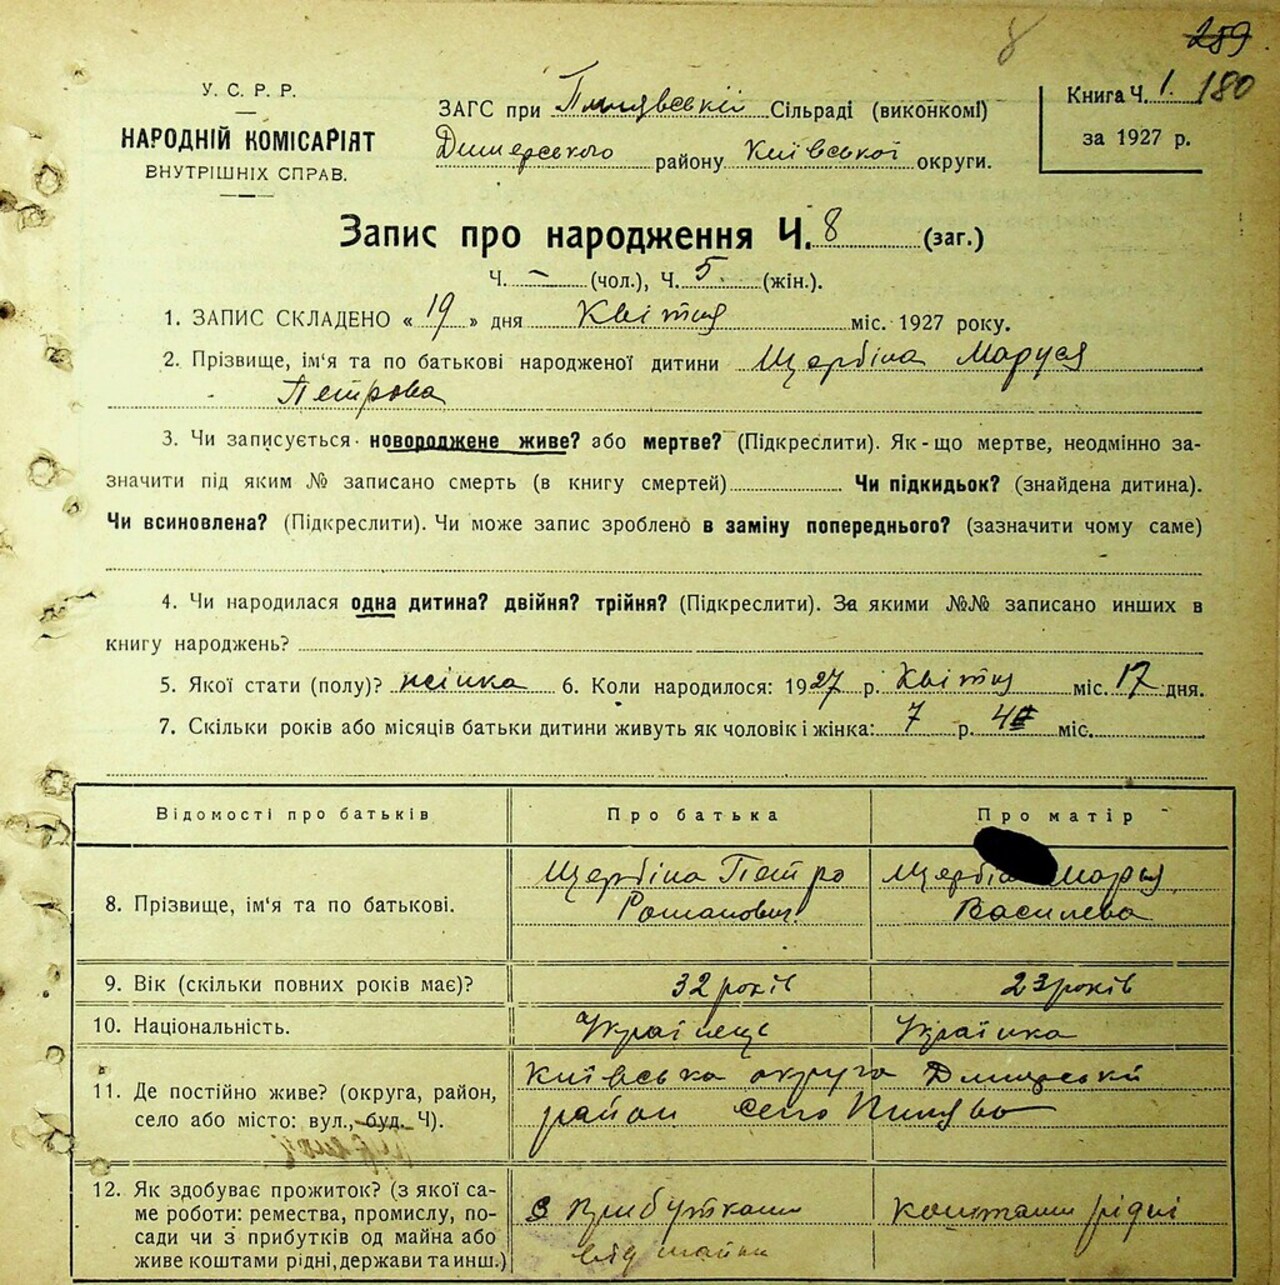 8 259
У. С. Р. Р.
НАРОДНІЙ КОМІСАРІЯТ
ВНУТРІШНІХ СПРАВ.
ЗАГС при Пилявській Сільраді (виконкомі)
Димерського району Київської округи.
Книга Ч. 1. 180
за 1927 р.
Запис про народження Ч. 8 (заг.)
Ч. – (чол.), Ч. 5. (жін.).
1. ЗАПИС СКЛАДЕНО « 19 » дня Квітня міс. 1927 року.
2. Прізвище, ім'я та по батькові народженої дитини Щербіна Маруся
Петрова
3. Чи записується новороджене живе? або мертве? (Підкреслити). Як-що мертве, неодмінно за-
значити під яким № записано смерть (в книгу смертей) Чи підкидьок? (знайдена дитина).
Чи всиновлена? (Підкреслити). Чи може запис зроблено в заміну попереднього? (зазначити чому саме)
4. Чи народилася одна дитина? двійня? трійня? (Підкреслити). За якими №№ записано инших в
книгу народжень?
5. Якої стати (полу)? жінка 6. Коли народилося: 1927 р. Квітня міс. 17 дня.
7. Скільки років або місяців батьки дитини живуть як чоловік і жінка: 7 р. 4 міс.
Відомості про батьків Про батька Про матір
8. Прізвище, ім'я та по батькові. Щербіна Петро Романович. Щербіна Марія Василева
9. Вік (скільки повних років має)? 32 років 23 років
10. Національність. Українець Українка
11. Де постійно живе? (округа, район, Київська округа Димерській
село або місто: вул., буд. Ч). район село Пилява
12. Як здобуває прожиток? (з якої са-
ме роботи: ремества, промислу, по- З прибутками коштами рідні
сади чи з прибутків од майна або від майна
живе коштами рідні, держави та инш.)